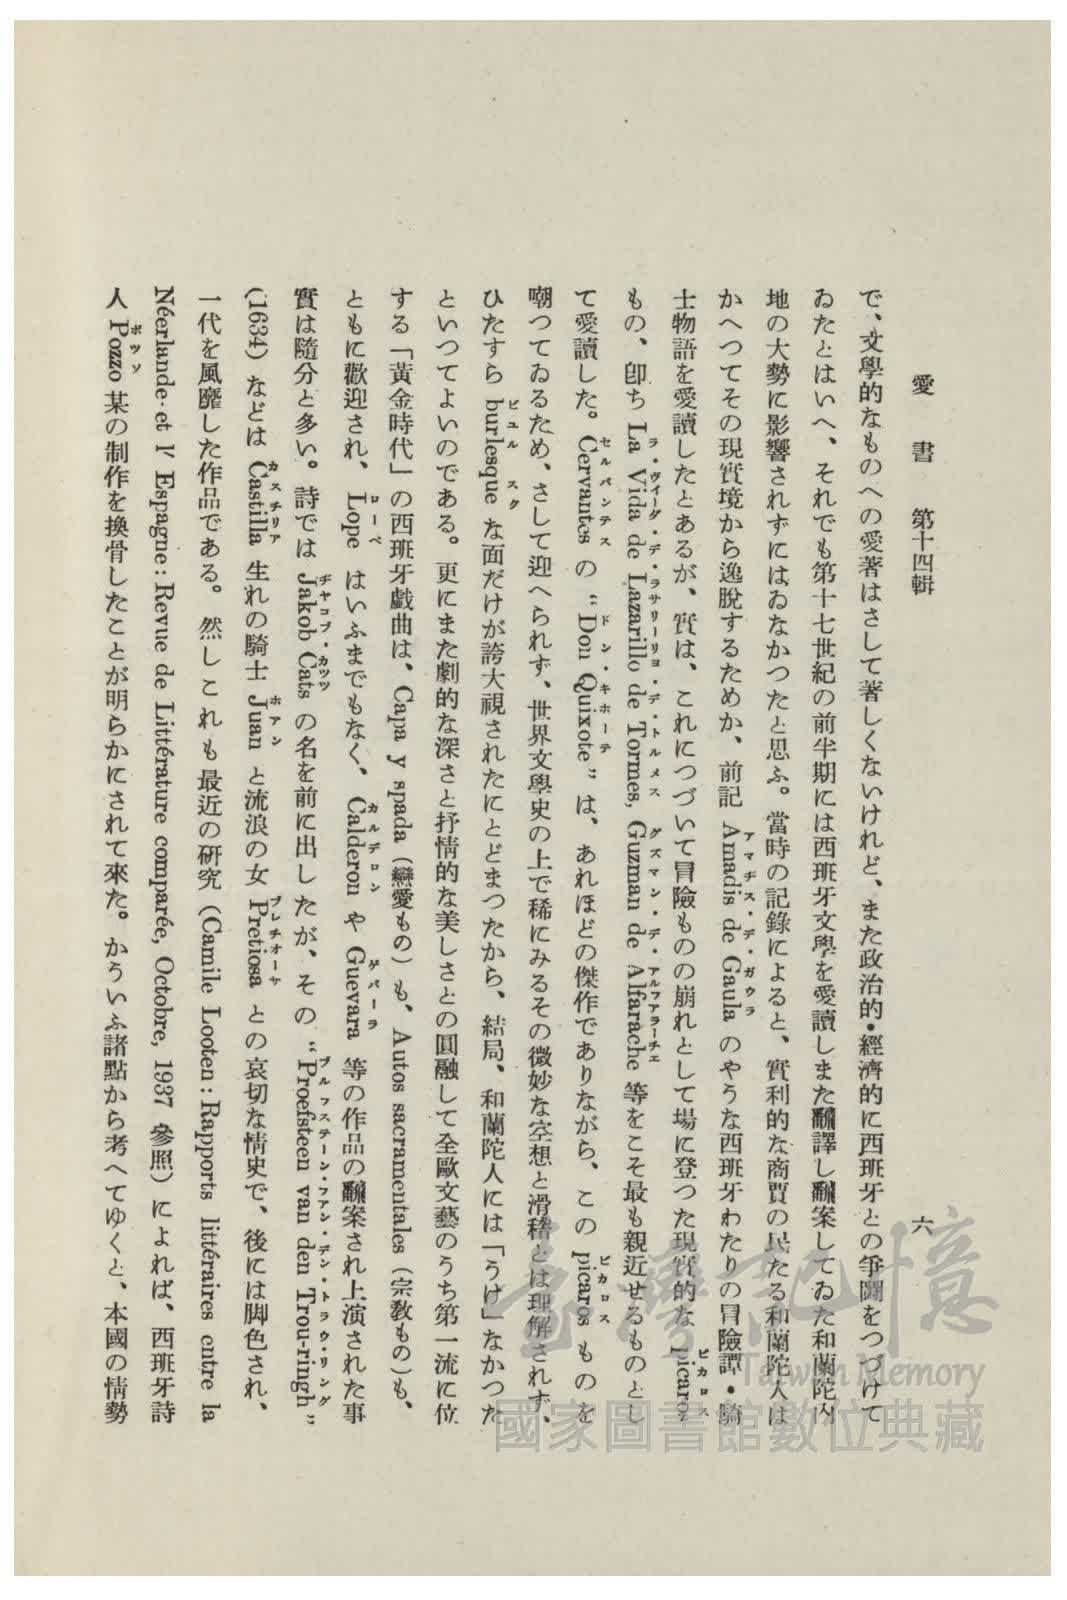 愛書 第十四輯
六
で、文學的なものへの愛著はさして著しくないけれど、また政治的・經濟的に西班牙との爭鬪をつづけて
ゐたとはいへ、それでも第十七世紀の前半期には西班牙文學を愛讀しまた飜譯し飜案してゐた和蘭陀内
地の大勢に影響されずにはゐなかつたと思ふ。當時の記錄によると、實利的な商賈の民たる和蘭陀人は
かへつてその現實境から逸脫するためか、前記 Amadis de Gaula のやうな西班牙わたりの冒險譚・騎
アマヂス・デ・ガウラ
士物語を愛讀したとあるが、實は、これにつづいて冒險ものの崩れとして場に登つた現實的な picaros
ピカロス
もの、卽ち La Vida de Lazarillo de Tormes, Guzman de Alfarache 等をこそ最も親近せるものとし
ラ・ヴイーダ・デ・ラサリーリヨ・デ・トルメス グズマン・デ・アルフアラーチエ
て愛讀した。Cervantes の “Don Quixote” は、あれほどの傑作でありながら、この picaros ものを
セルバンテス ドン・キホーテ ピカロス
嘲つてゐるため、さして迎へられず、世界文學史の上で稀にみるその微妙な空想と滑稽とは理解されず、
ひたすら burlesque な面だけが誇大視されたにとどまつたから、結局、和蘭陀人には「うけ」なかつた
ビュルスク
といつてよいのである。更にまた劇的な深さと抒情的な美しさとの圓融して全歐文藝のうち第一流に位
する「黃金時代」の西班牙戲曲は、Capa y spada（戀愛もの）も、Autos sacramentales（宗敎もの）も、
ともに歡迎され、Lope はいふまでもなく、Calderon や Guevara 等の作品の飜案され上演された事
ローペ カルデロン ゲバーラ
實は隨分と多い。詩では Jakob Cats の名を前に出したが、その “Proefsteen van den Trou-ringh”
ヂヤコブ・カツツ プルフステーン・フアン・デン・トラウ・リング
(1634) などは Castilla 生れの騎士 Juan と流浪の女 Pretiosa との哀切な情史で、後には脚色され、
カスチリア ホアン プレチオーサ
一代を風靡した作品である。然しこれも最近の硏究（Camile Looten: Rapports littéraires entre la
Néerlande et l' Espagne: Revue de Littérature comparée, Octobre, 1937 參照）によれば、西班牙詩
人 Pozzo 某の制作を換骨したことが明らかにされて來た。かういふ諸點から考へてゆくと、本國の情勢
ポツソ
臺灣記憶
Taiwan Memory
國家圖書館數位典藏